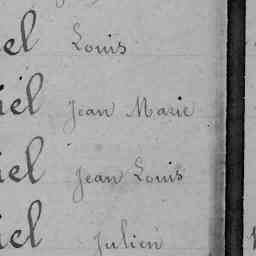 el Louis
iel Jean Marie
iel Jean Louis
iel Julien